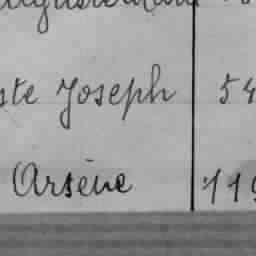 ste Joseph 54
Arsène 119